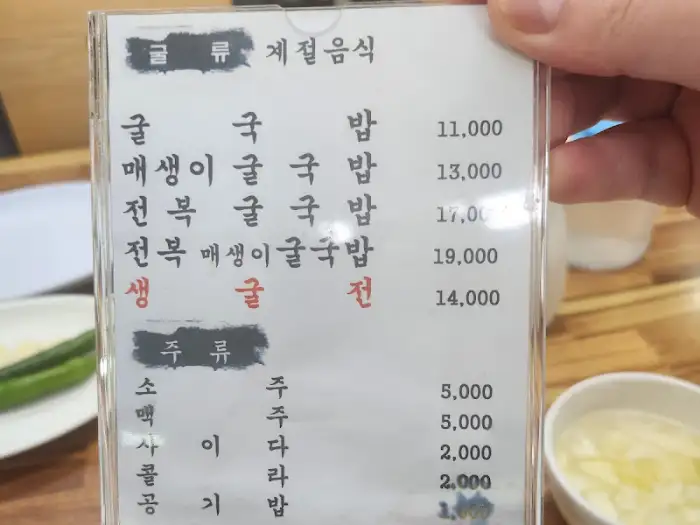 굴 류 계절음식
굴 국 밥 11,000
매생이 굴 국 밥 13,000
전 복 굴 국 밥 17,000
전복 매생이 굴국밥 19,000
생 굴 전 14,000
주 류
소 주 5,000
맥 주 5,000
사 이 다 2,000
콜 라 2,000
공 기 밥